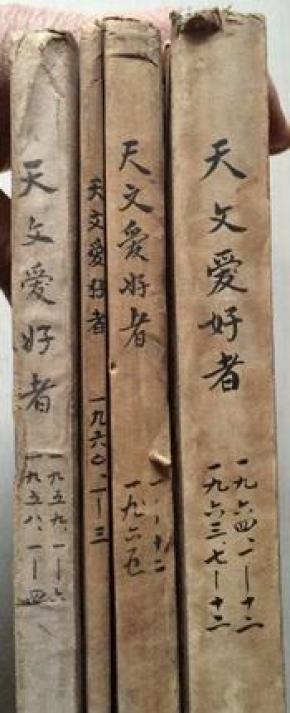 天文爱好者
一九五八、一—四
一九五九、一—六
天文爱好者
一九六〇、一—三
天文爱好者
一九六五
一—十二
天文爱好者
一九六三七—十二
一九六四、一—十二